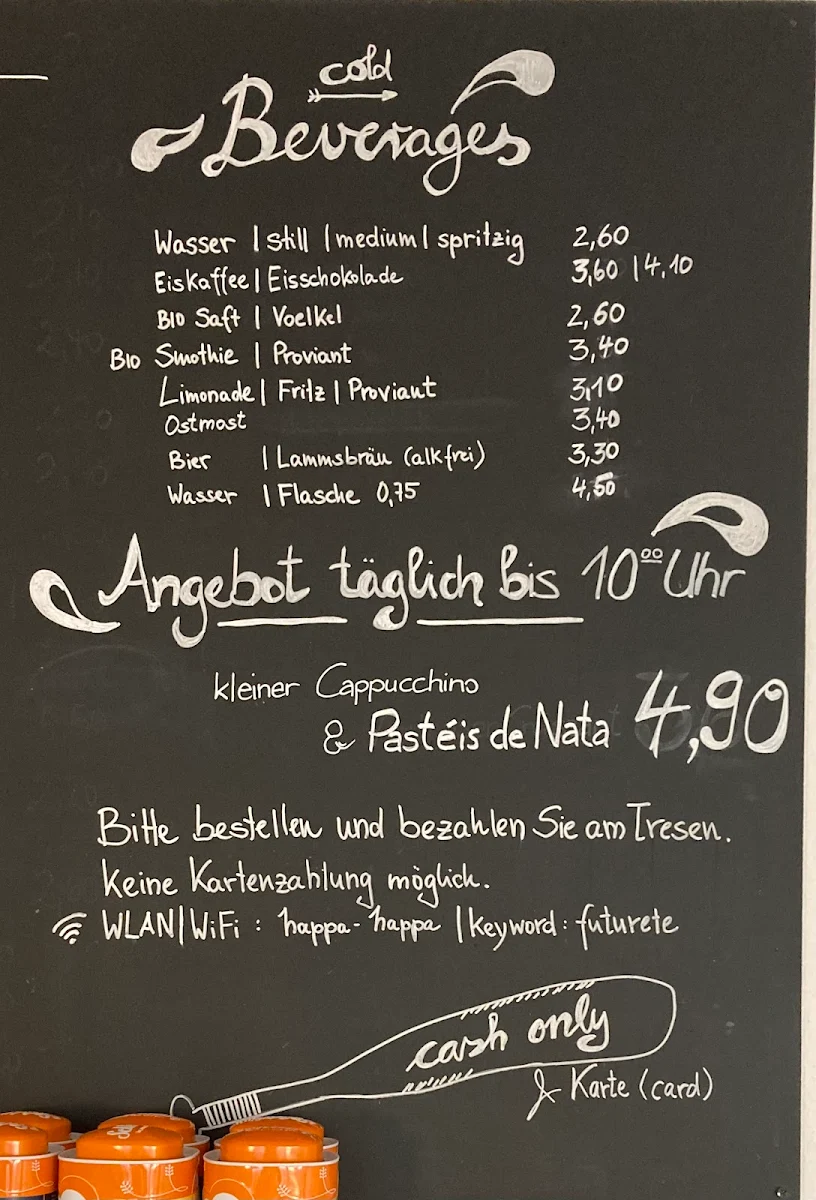 cold
Beverages
Wasser | still | medium | spritzig 2,60
Eiskaffee | Eisschokolade 3,60 | 4,10
BIO Saft | Voelkel 2,60
BIO Smothie | Proviant 3,40
Limonade | Fritz | Proviant 3,10
Ostmost 3,40
Bier | Lammsbräu (alkfrei) 3,30
Wasser | Flasche 0,75 4,50
Angebot täglich bis 10⁰⁰ Uhr
kleiner Cappucchino
& Pastéis de Nata 4,90
Bitte bestellen und bezahlen Sie am Tresen.
Keine Kartenzahlung möglich.
WLAN|WiFi : happa-happa | keyword: futurete
cash only
& Karte (card)